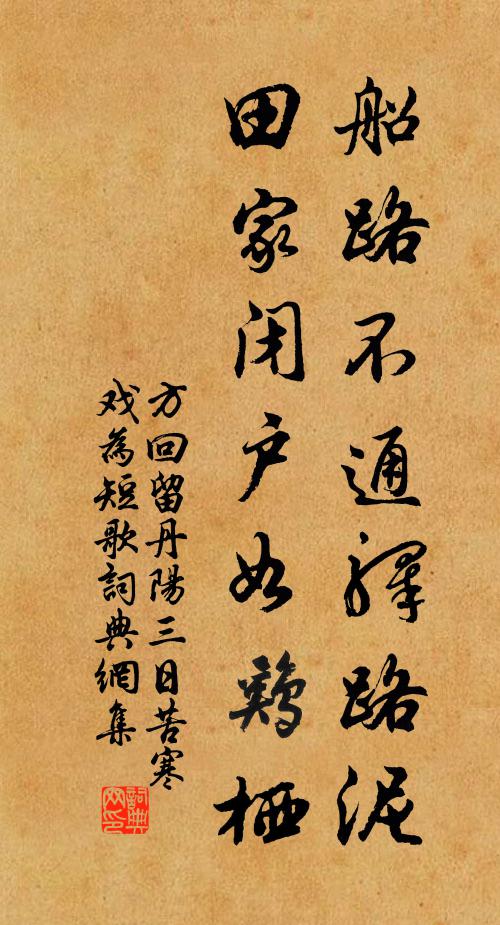 船路不通驛路泥
田家闭户如鷄栖
方回留丹陽三日苦寒
戏為短歌詞典網集
詞典网印